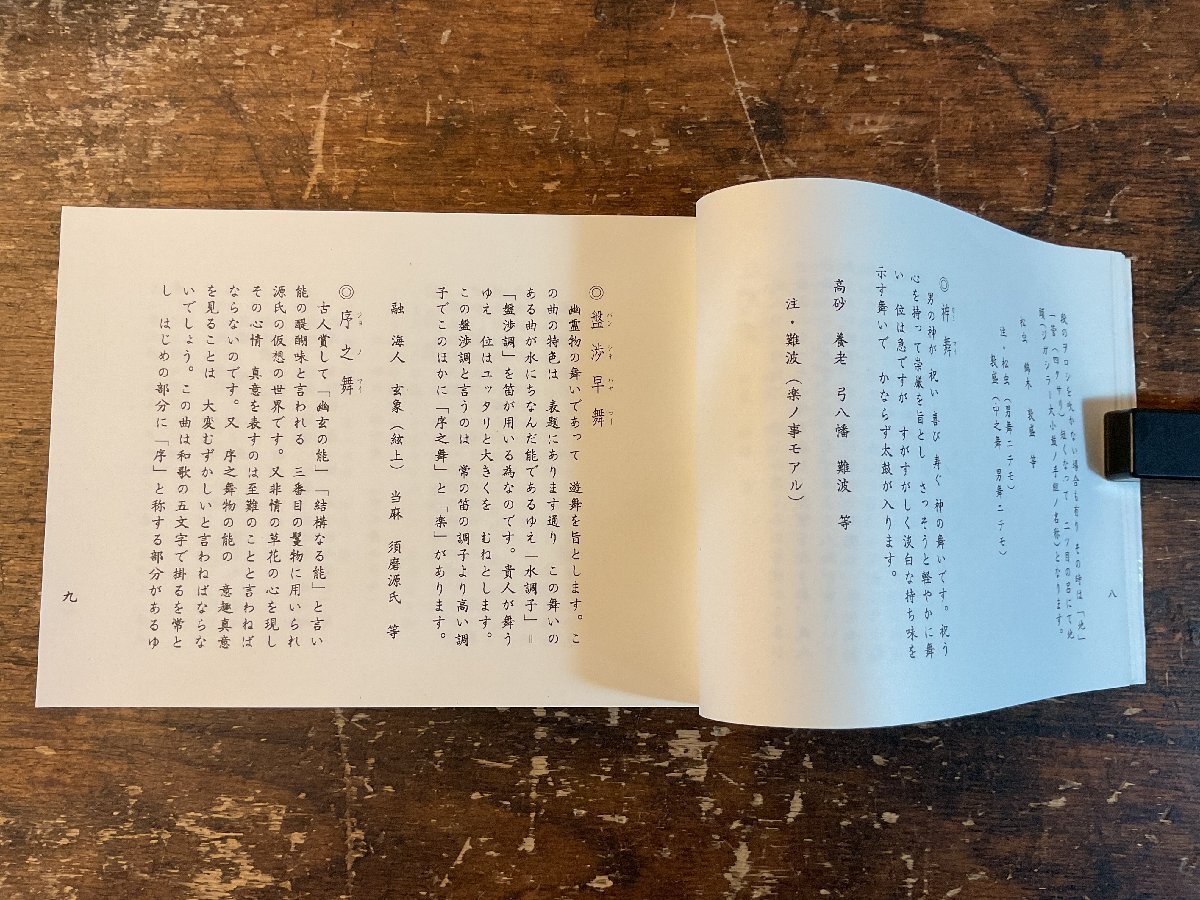 段のヲロシを吹かない場合も有り その時は「地」
一管(四クサリ)短くなって 二ツ目の呂にて地
頭(ジガシラ=大小鼓ノ手組ノ名称)となります。
松虫 錦木 敦盛 等
注・松虫(男舞ニテモ)
敦盛(中之舞 男舞ニテモ)
◎神舞
男の神が 祝い 喜び 寿ぐ 神の舞いです。祝う
心を持って崇厳を旨とし さっそうと軽やかに舞
い 位は急ですが すがすがしく淡白な持ち味を
示す舞いで かならず太鼓が入ります。
高砂 養老 弓八幡 難波 等
注・難波(楽ノ事モアル)
八
◎盤渉早舞
バンシキハヤマー
幽霊物の舞いであって 遊舞を旨とします。こ
の曲の特色は 表題にあります通り この舞いの
ある曲が水にちなんだ能であるゆえ「水調子」=
「盤渉調」を笛が用いる為なのです。貴人が舞う
ゆえ 位はユッタリと大きくを むねとします。
この盤渉調と言うのは 常の笛の調子より高い調
子でこのほかに「序之舞」と「楽」があります。
融 海人 玄象(絃上) 当麻 須磨源氏 等
◎序之舞
ジョノマイ
古人賞して「幽玄の能」「結構なる能」と言い
能の醍醐味と言われる 三番目の鬘物に用いられ
源氏の仮想の世界です。又非情の草花の心を現し
その心情 真意を表すのは至難のことと言わねば
ならないのです。又 序之舞物の能の 意趣真意
を見ることは 大変むずかしいと言わねばならな
いでしょう。この曲は和歌の五文字で掛るを常と
し はじめの部分に「序」と称する部分があるゆ
九